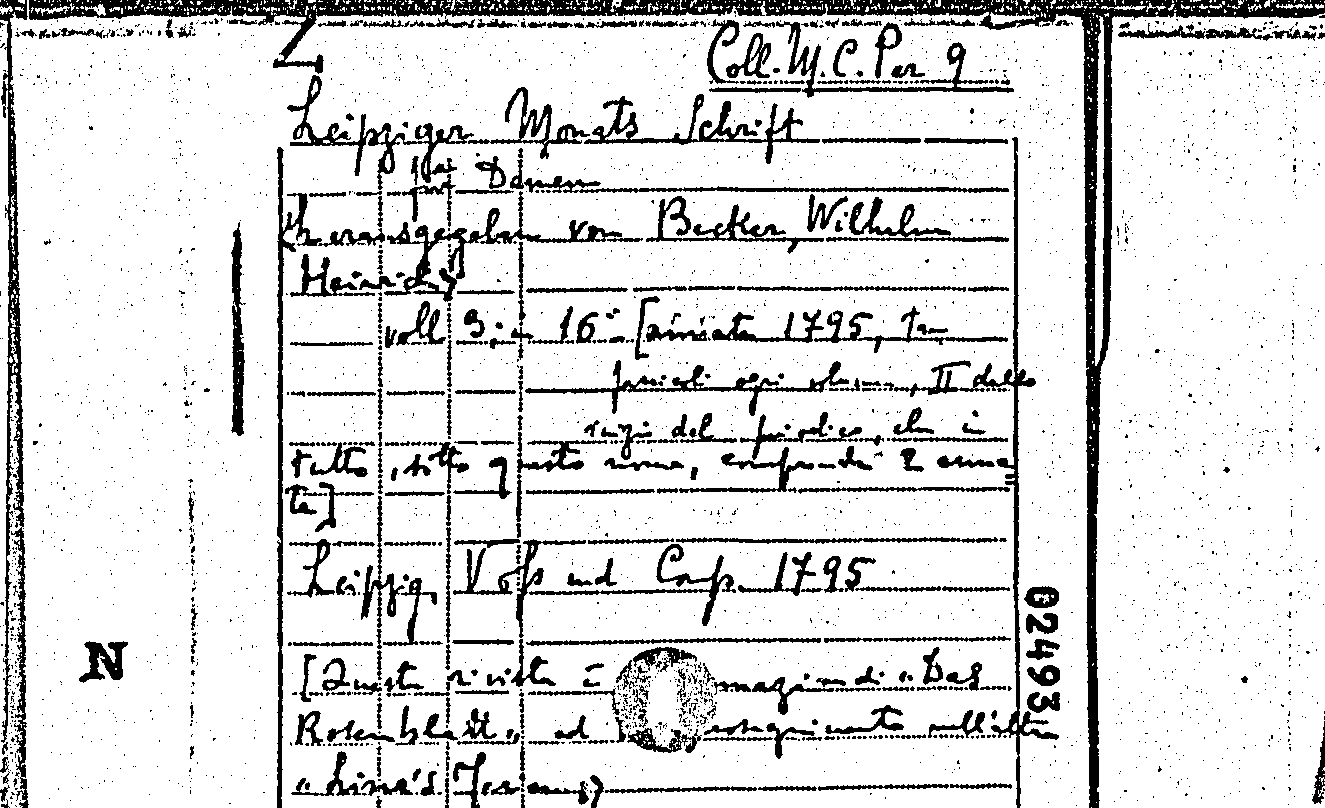 Coll. M. C. Per 9
Leipziger Monats Schrift
für Damen
herausgegeben von Becker, Wilhelm
Heinrich
voll 3; in 16° [annata 1795, tre
fascicoli ogni volume, II della
serie del periodico, che in
tutto, sotto questo nome, comprende 2 anna
ta]
Leipzig, Voss und Comp. 1795
[Questa rivista è di "Das
Rosenblatt" ad nell'altra
N
024931